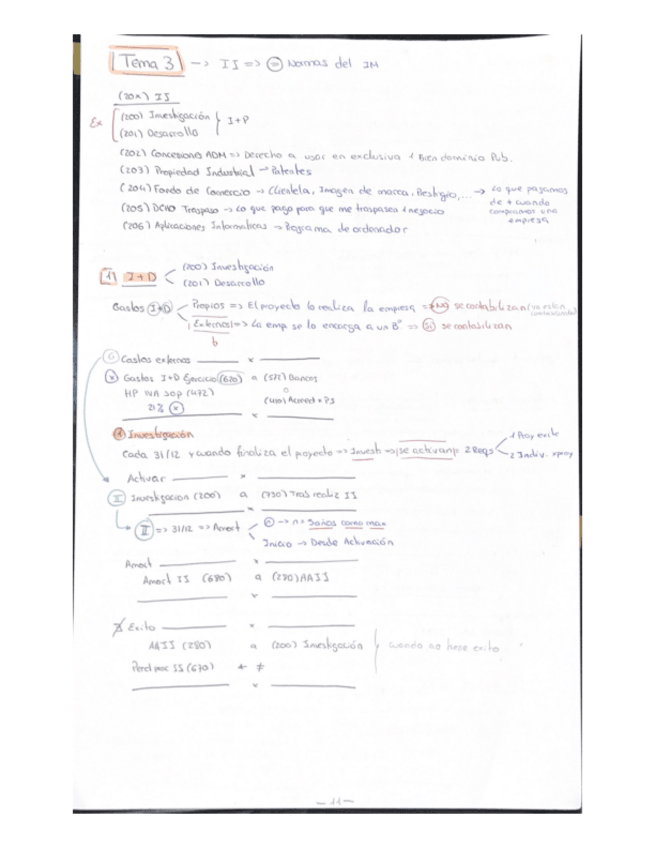 Tema 3 -> II => = Normas del IM
(20x) II
Ex (200) Investigación
(201) Desarrollo } I+D
(202) Concesiones ADM => Derecho a usar en exclusiva 1 Bien dominio Pub.
(203) Propiedad Industrial -> Patentes
(204) Fondo de Comercio -> Clientela, Imagen de marca, Prestigio,... -> Lo que pagamos de + cuando compramos una empresa
(205) DCHO Traspaso -> Lo que pago para que me traspasen 1 negocio
(206) Aplicaciones Informáticas -> Programa de ordenador
1 I+D < (200) Investigación
(201) Desarrollo
Gastos I+D < Propios => El proyecto lo realiza la empresa => NO se contabilizan (ya están contabilizados)
Externos => La emp se lo encarga a un Bº => SI se contabilizan
b
Gastos externos x
x Gastos I+D Ejercicio (620) a (572) Bancos
HP IVA sop (472) o
21% x (410) Acreed x PS
x
Investigación
Cada 31/12 y cuando finaliza el proyecto => Invest => se activan: 2 Reqs < 1 Proy exito
2 Indiv. x proy
Activar x
II Investigacion (200) a (730) Trab realiz II
x
III => 31/12 => Amort < n -> 5 años como max
Inicio -> Desde Activación
Amort x
Amort II (680) a (280) AAII
x
Exito x
AAII (280) a (200) Investigación } cuando no hase exito
Perd proc II (670) ← ≠
x
- 11 -